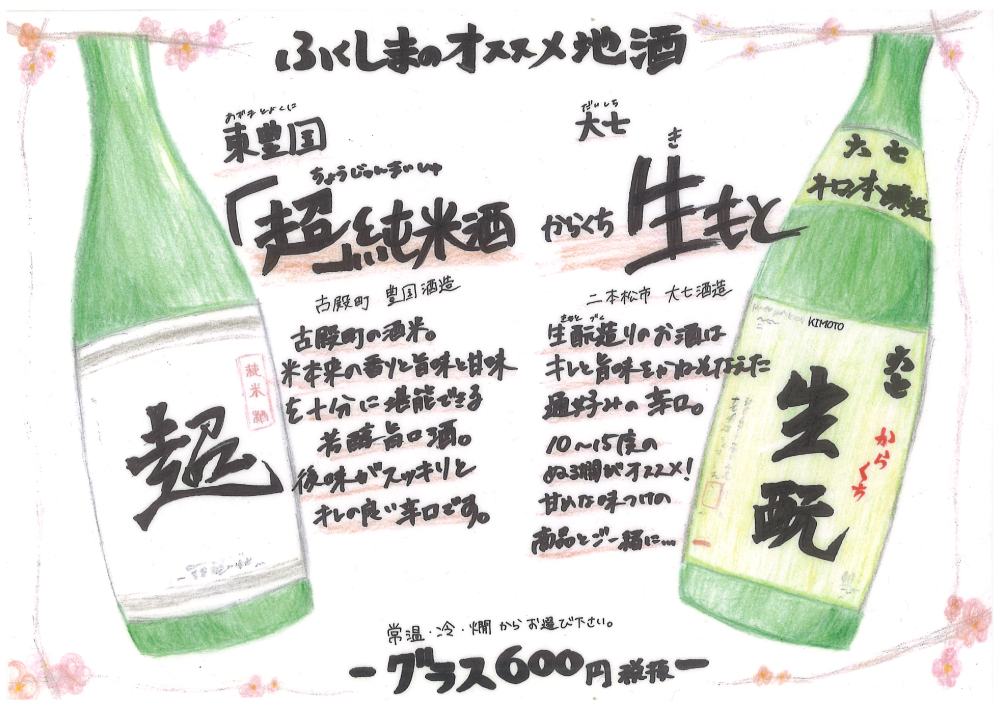 ふくしまのオススメ地酒
あずまとよくに
東豊国
ちょうじゅんまいしゅ
「超」純米酒
古殿町 豊国酒造
古殿町の酒米。
米本来の香りと旨味と甘味
を十分に堪能できる
芳醇旨口酒。
後味がスッキリと
キレの良い辛口です。
だいしち
大七
き
からくち 生もと
二本松市 大七酒造
きもとづく
生酛造りのお酒は
キレと旨味をかねそなえた
通好みの辛口。
10〜15度の
ぬる燗がオススメ!
甘めな味つけの
商品とご一緒に…
純米酒
超
大七
KIMOTO
大七
生酛
からくち
常温・冷・燗からお選び下さい。
ーグラス600円税抜ー